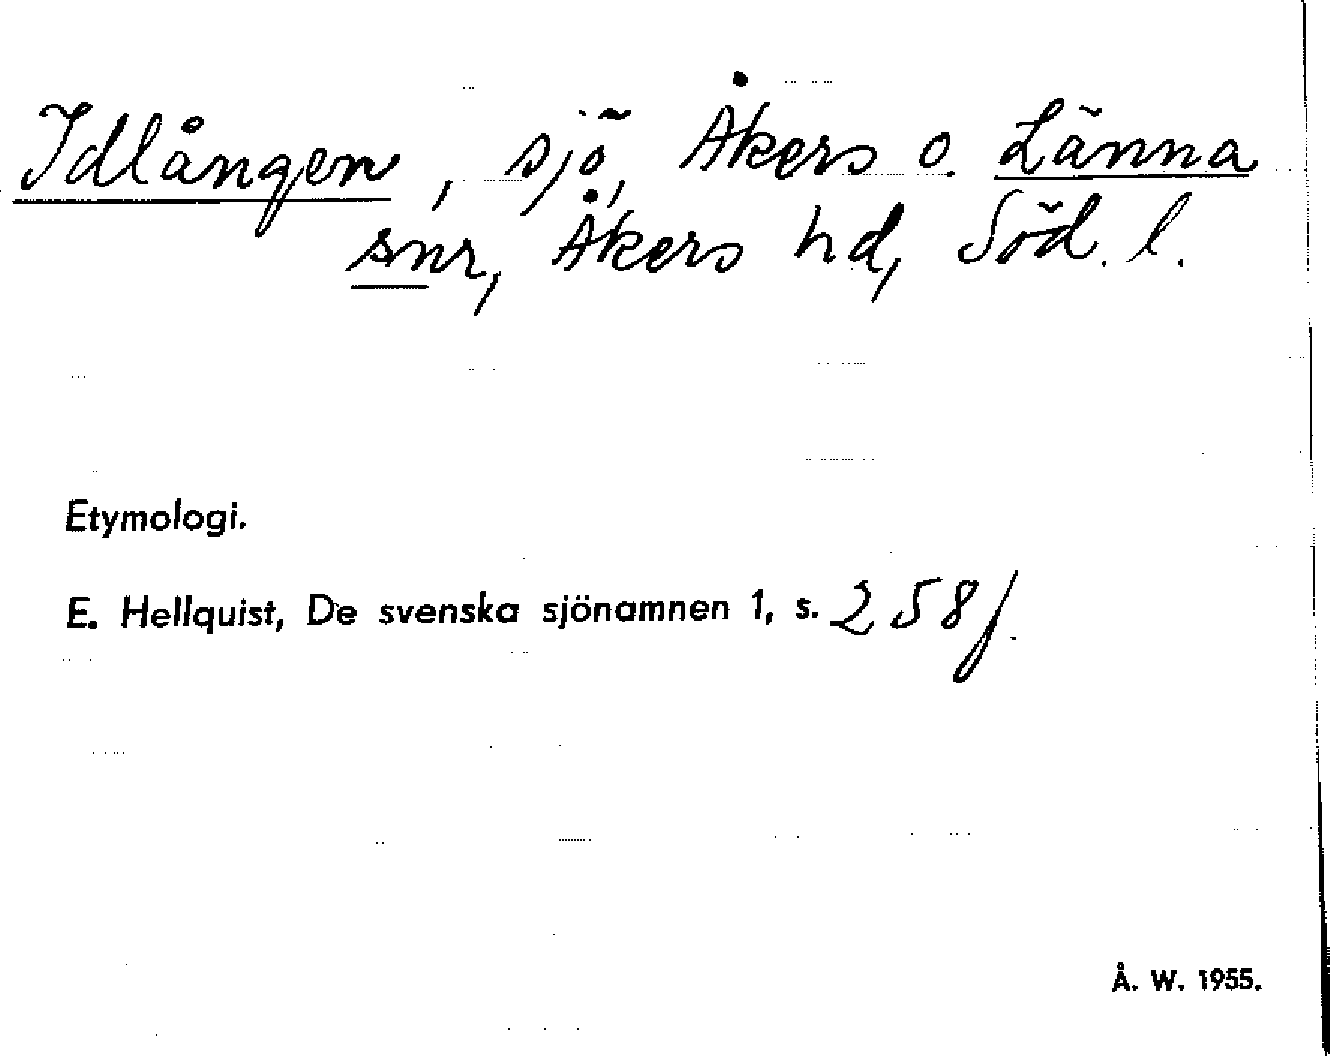 Idlången, sjö, Åkers o. Länna
snr, Åkers hd, Söd. l.
Etymologi.
E. Hellquist, De svenska sjönamnen 1, s. 258 f.
Å. W. 1955.